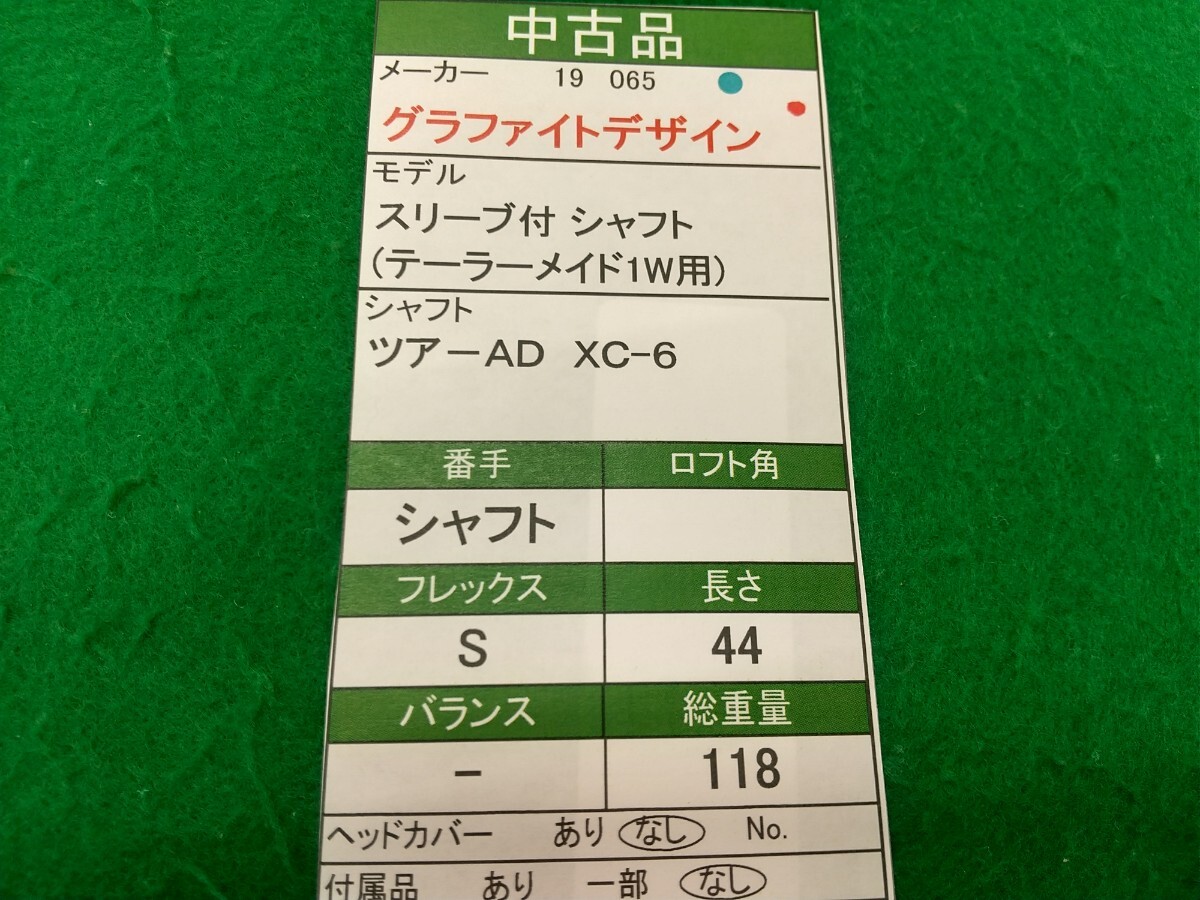 中古品
メーカー 19 065
グラファイトデザイン
モデル
スリーブ付 シャフト
(テーラーメイド1W用)
シャフト
ツアーAD XC-6
番手 ロフト角
シャフト
フレックス 長さ
S 44
バランス 総重量
- 118
ヘッドカバー あり なし No.
付属品 あり 一部 なし